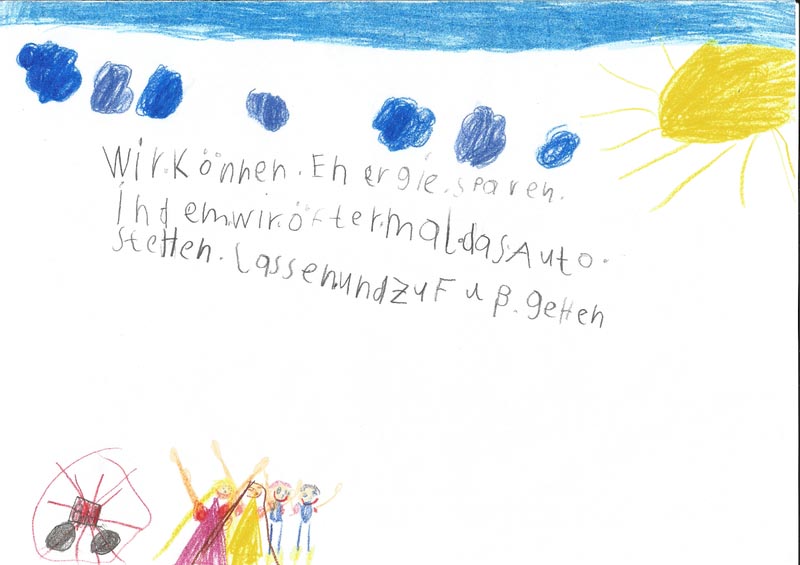 Wir.Können.Energie.sparen.
indemwir.öfter.mal.das.Auto.
stehen.lassen.und.zu.Fuß.gehen